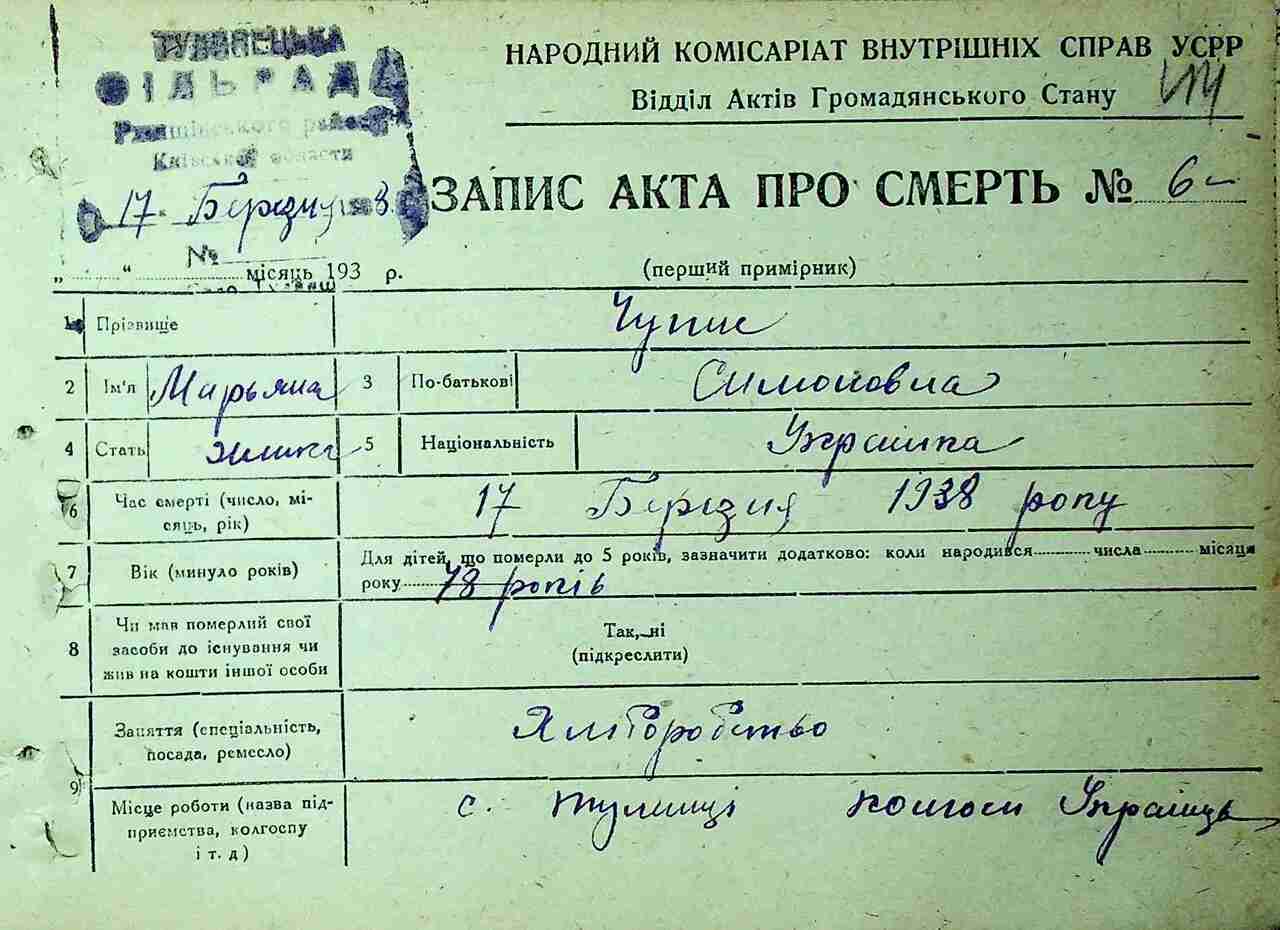 ТУЛИНЕЦЬКА
СІЛЬРАДА
Ржищівського району
Київської области
17 Березня
№
НАРОДНИЙ КОМІСАРІАТ ВНУТРІШНІХ СПРАВ УСРР
Відділ Актів Громадянського Стану
ЗАПИС АКТА ПРО СМЕРТЬ № 6
„ “ місяць 193 р.
(перший примірник)
1 Прізвище Чупис
2 Ім'я Марьяна 3 По-батькові Симоновна
4 Стать жінка 5 Національність Українка
6 Час смерті (число, мі-
сяць, рік) 17 Березня 1938 року
7 Вік (минуло років) Для дітей, що померли до 5 років, зазначити додатково: коли народився числа місяця
року 78 років
8 Чи мав померлий свої
засоби до існування чи
жив на кошти іншої особи
Так, ні
(підкреслити)
9 Заняття (спеціальність,
посада, ремесло) Хліборобство
Місце роботи (назва під-
приємства, колгоспу
і т. д) с. Тулинці колгосп Українець